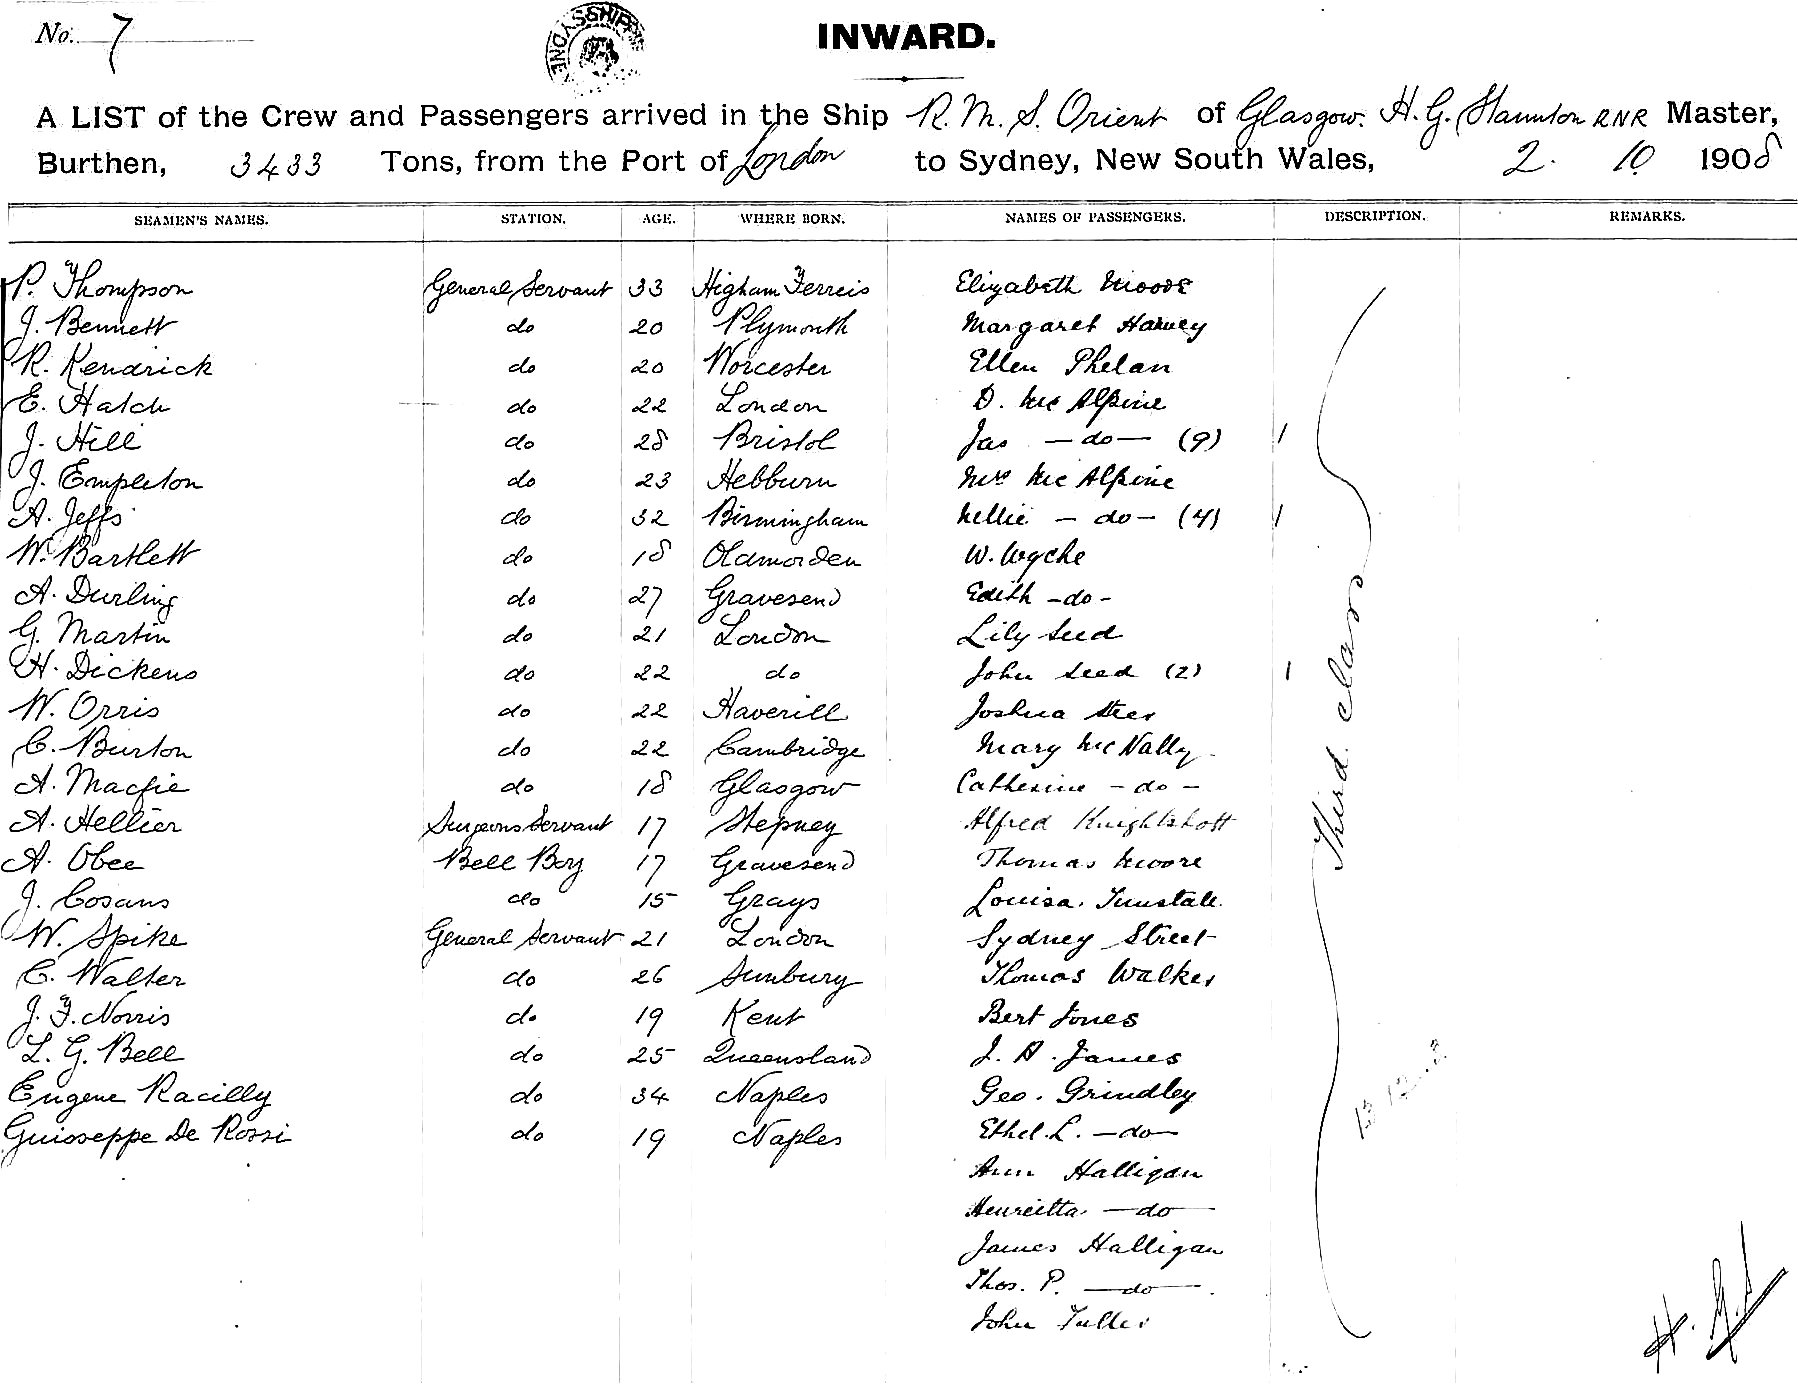 No. 7
SYD SHIPP
INWARD.
A LIST of the Crew and Passengers arrived in the Ship R.M.S. Orient of Glasgow. H. G. Staunton RNR Master,
Burthen, 3433 Tons, from the Port of London to Sydney, New South Wales, 2. 10. 1908
SEAMEN'S NAMES. STATION. AGE. WHERE BORN. NAMES OF PASSENGERS. DESCRIPTION. REMARKS.
P. Thompson General Servant 33 Higham Ferreis Elizabeth Moore
J. Bennett do 20 Plymouth Margaret Harvey
R. Kendrick do 20 Worcester Ellen Phelan
E. Hatch do 22 London D. McAlpine
J. Hill do 28 Bristol Jas — do — (9) 1
J. Empleton do 23 Hebburn Mrs McAlpine
A. Jeffs do 32 Birmingham Nellie — do — (4) 1
W. Bartlett do 18 Oldmorden W. Wyche
A. Durling do 27 Gravesend Edith - do -
G. Martin do 21 London Lily Seed
H. Dickens do 22 do John Seed (2) 1
W. Orris do 22 Haverill Joshua Steer
C. Burton do 22 Cambridge Mary McNally
A. Macfie do 18 Glasgow Catherine - do -
A. Hellier Surgeons Servant 17 Stepney Alfred Knightshott
A. Obee Bell Boy 17 Gravesend Thomas Moore
J. Cosans do 15 Grays Louisa Tunstall
W. Spike General Servant 21 London Sydney Street
C. Walter do 26 Sunbury Thomas Walker
J. F. Norris do 19 Kent Bert Jones
L. G. Bell do 25 Queensland J. A. James
Eugene Racilly do 34 Naples Geo. Grindley
Guiseppe De Rossi do 19 Naples Ethel L. — do —
Ann Halligan
Henrietta — do —
James Halligan
Thos. P. — do —
John Fuller
Third class